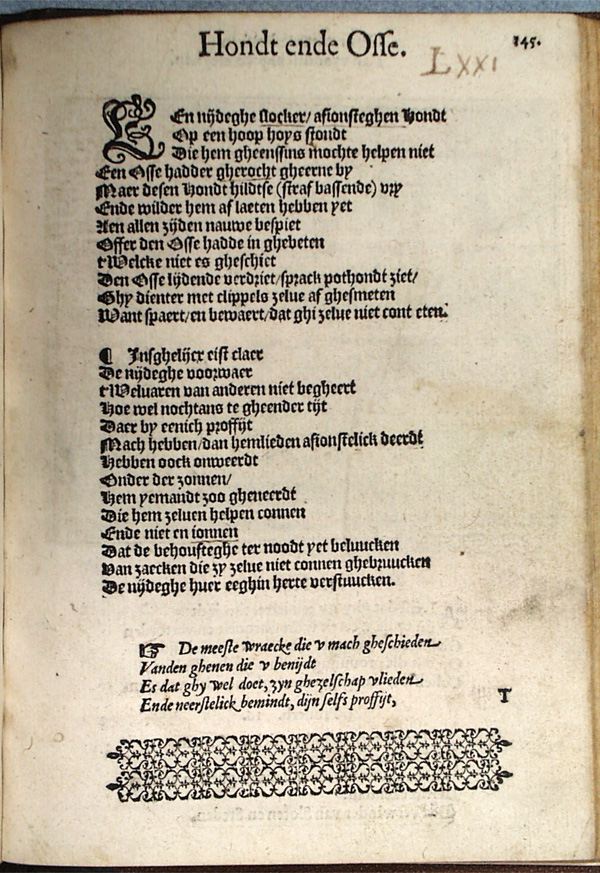 Hondt ende Osse.
145.
LXXI
EEn nijdeghe slocker/ afionsteghen Hondt
Op een hoop hoys stondt
Die hem gheenssins mochte helpen niet
Een Osse hadder gherocht gheerne by
Maer desen Hondt hildtse (straf bassende) vry
Ende wilder hem af laeten hebben yet
Aen allen zijden nauwe bespiet
Offer den Osse hadde in ghebeten
tWelcke niet es gheschiet
Den Osse lijdende verdriet/sprack pothondt ziet/
Ghy dienter met clippels zelue af ghesmeten
Want spaert/en bewaert/dat ghi zelue niet cont eten.
¶ Insghelijcx eist claer
De nijdeghe voorwaer
tWeluaren van anderen niet begheert
Hoe wel nochtans te gheender tijt
Daer by eenich proffijt
Mach hebben/dan hemlieden afionstelick deerdt
Hebben oock onweerdt
Onder der zonnen/
Hem yemandt zoo gheneerdt
Die hem zeluen helpen connen
Ende niet en ionnen
Dat de behoufteghe ter noodt yet beluucken
Van zaecken die zy zelue niet connen ghebruucken
De nijdeghe huer eeghin herte verstuucken.
☞ De meeste wraecke die v mach gheschieden
Vanden ghenen die v benijdt
Es dat ghy wel doet, zyn ghezelschap vlieden
Ende neerstelick bemindt, dijn selfs proffijt,
T